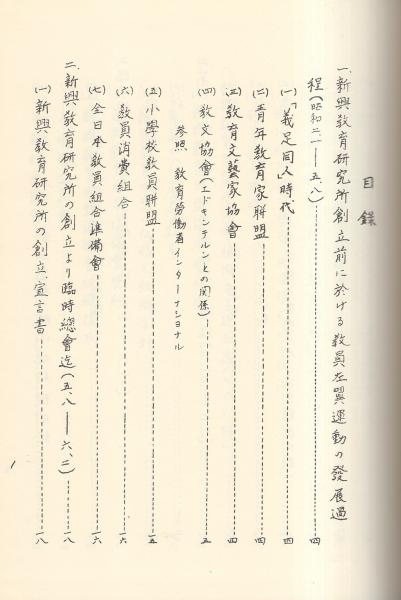 目錄
一、新興敎育硏究所創立前に於ける敎員左翼運動の發展過
程(昭和二・一——五・八)……四
(一)「義足同人」時代……四
(二)靑年敎育家聯盟……四
(三)敎育文藝家協會……四
(四)敎文協會(エドキンテルンとの関係)……五
參照 敎育勞働者インターナショナル
(五)小學校敎員聯盟……一五
(六)敎員消費組合……一六
(七)全日本敎員組合準備會……一六
二、新興敎育硏究所の創立より臨時總會迄(五、八——六、二)……一八
(一)新興敎育硏究所の創立、宣言書……一八